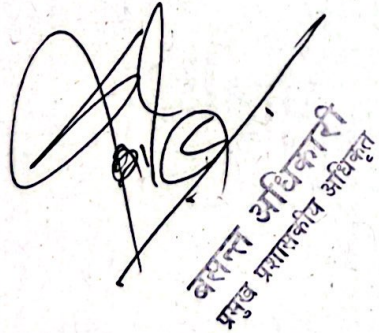 बसन्त अधिकारी
प्रमुख प्रशासकीय अधिकृत